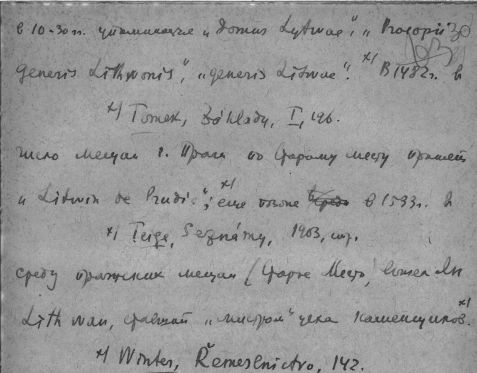 в 10-30 гг. упоминаются „Domus Lytwae", „Procopii
generis Lithwonis", „generis Litwae". *) В 1482 г. в
*) Tomek, Základy, I, 196.
число мещан г. Праги по Старому месту принят
„Litwin de Prudi "; *) еще позже в 1593 г. в
*) Teige, Seznámy, 1903, стр.
среду пражских мещан (Старое Место) вошел Jan
Lithwan, ставший „мистром" цеха каменщиков. *)
*) Winter, Řemeslnictvo, 142.